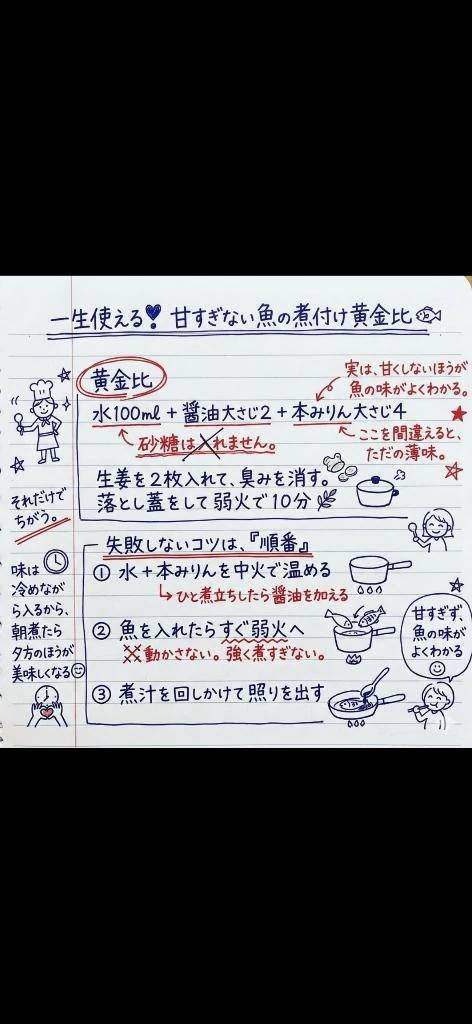 一生使える💙 甘すぎない魚の煮付け黄金比
黄金比
実は、甘くしないほうが
魚の味がよくわかる。
水100ml + 醤油大さじ2 + 本みりん大さじ4
砂糖は入れません。
ここを間違えると、
ただの薄味。
生姜を2枚入れて、臭みを消す。
落とし蓋をして弱火で10分
それだけで
ちがう。
失敗しないコツは、『順番』
① 水+本みりんを中火で温める
ひと煮立ちしたら醤油を加える
② 魚を入れたらすぐ弱火へ
※※動かさない。強く煮すぎない。
③ 煮汁を回しかけて照りを出す
味は
冷めなが
ら入るから、
朝煮たら
夕方のほうが
美味しくなる☺
甘すぎず、
魚の味が
よくわかる